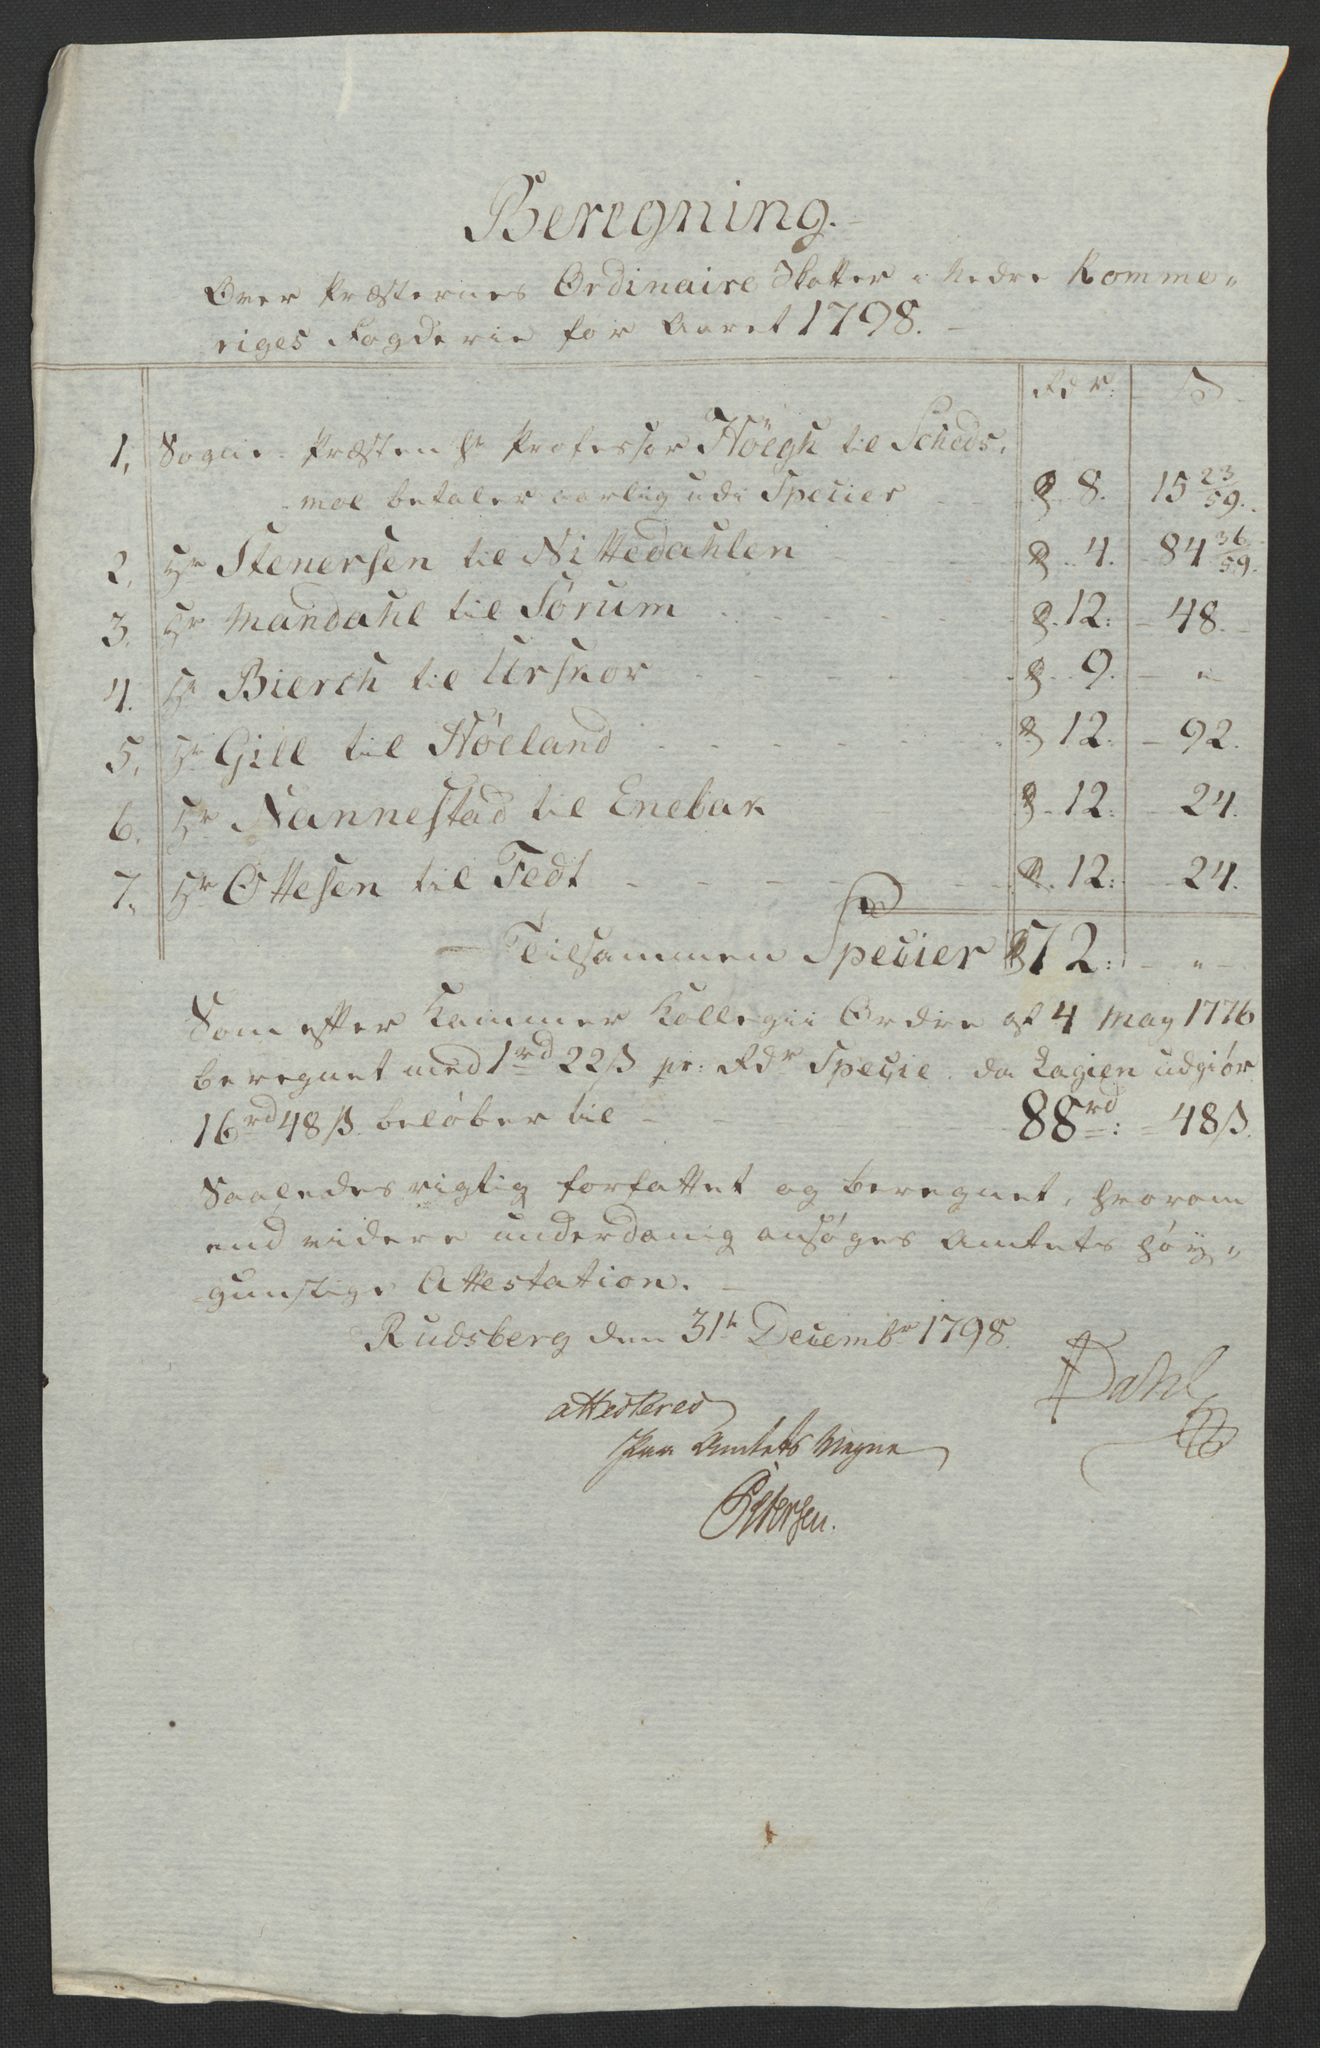 Beregning.
Over Præsternes Ordinaire Skatter i Nedre Romme„
riges Fogderie for Aaret 1798.
Rdr: ß
1, Sogne-Præsten Hr Professor Höegh til Scheds„
moe betaler aarlig udi Specier 8. 15 23/59.
2, Hr Stenersen til Nittedahlen 4. 84 36/59.
3, Hr Mandahl til Sørum 12: 48.
4. Hr Bierch til Urskov 9. "
5, Hr Gill til Høeland 12: 92.
6. Hr Nannestad til Enebak 12: 24.
7. Hr Ottesen til Fedt 12: 24.
Tilsammen Specier 72: "
Som efter Kammer Kollegii Ordre af 4 May 1776
beregnet med 1rd 22ß pr: Rdr Specie da Lagien udgiør
16rd 48ß beløber til 88rd: 48ß.
Saaledes rigtig forfattet og beregnet, hvorom
end videre underdanig ansøges Amtets høy„
gunstige Attestation.
Rudsberg den 31te Decembr 1798.
Dahl
attesteres
Paa Amtets Vegne
Pettersen.